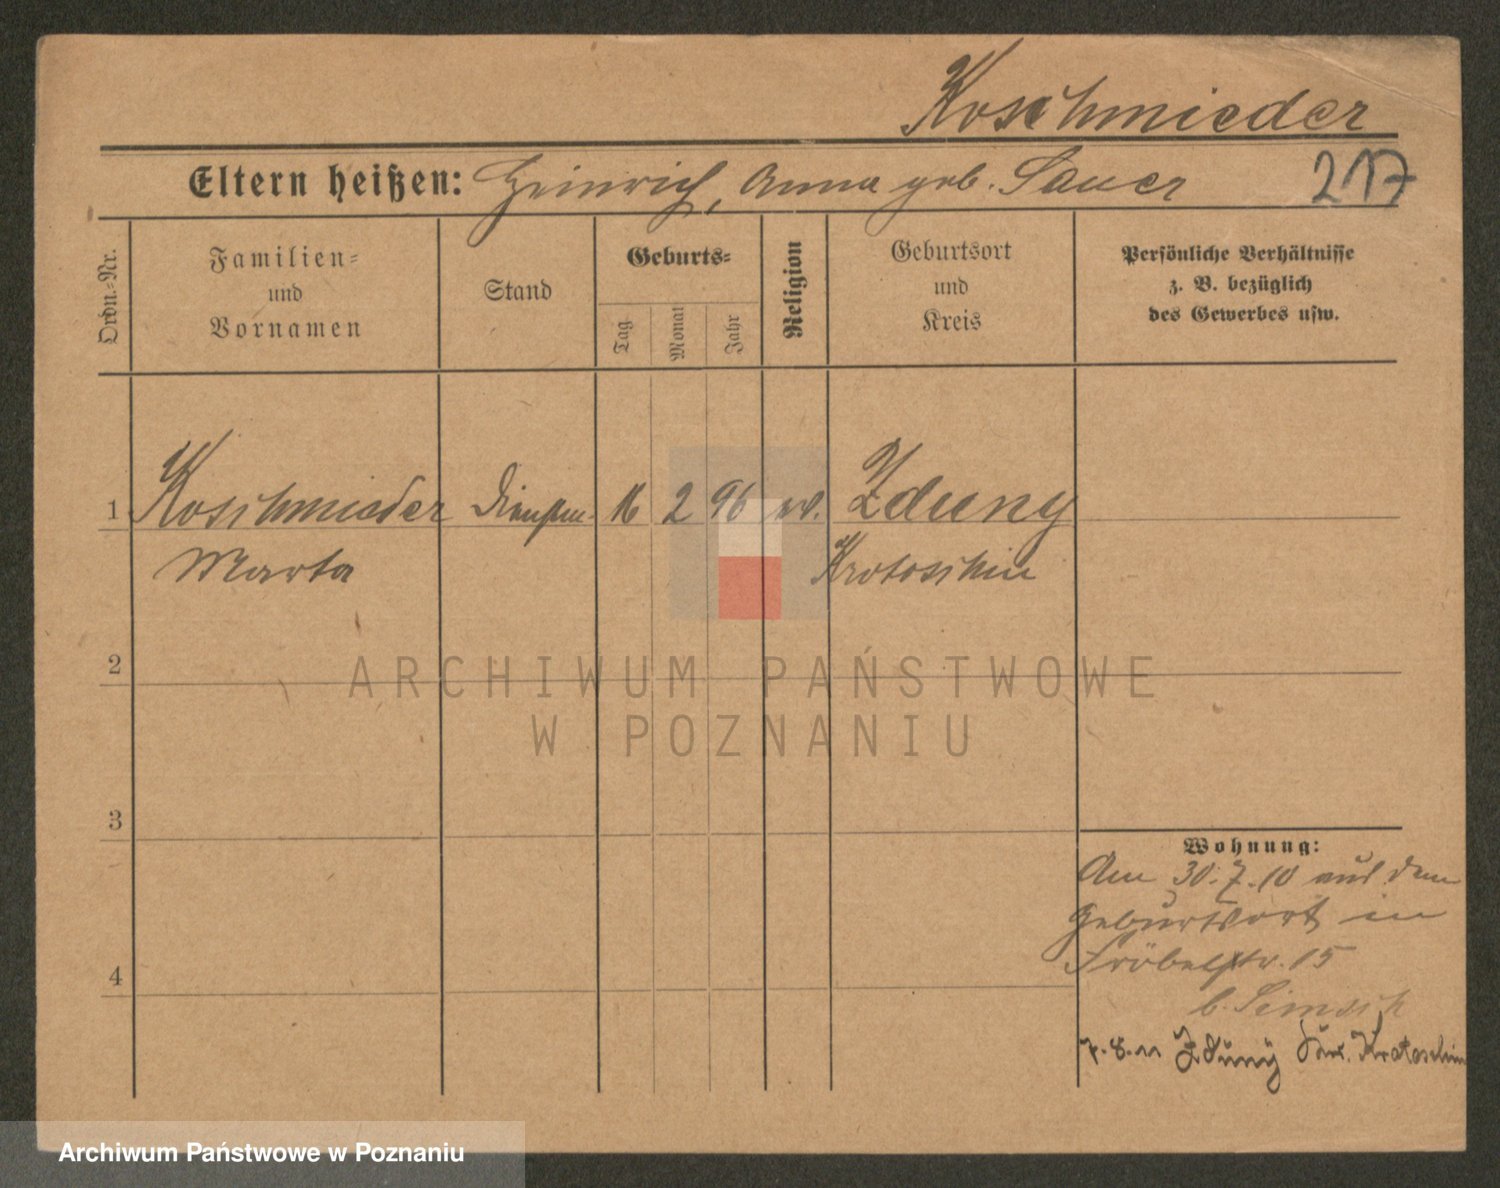 Koschmieder
Eltern heißen: Heinrich, Anna geb. Sauer 217
Ordn.-Nr.
Familien-
und
Vornamen
Stand
Geburts-
Tag
Monat
Jahr
Religion
Geburtsort
und
Kreis
Persönliche Verhältnisse
z. B. bezüglich
des Gewerbes usw.
1 Koschmieder 16 2 96 ev. Zduny
Marta Krotoschin
2
3
4
Wohnung:
Am 30.7.10 aus dem
Geburtsort in
Fröbelstr. 15
b.
7.8.11 Zduny Krotoschin
ARCHIWUM PAŃSTWOWE
W POZNANIU
Archiwum Państwowe w Poznaniu